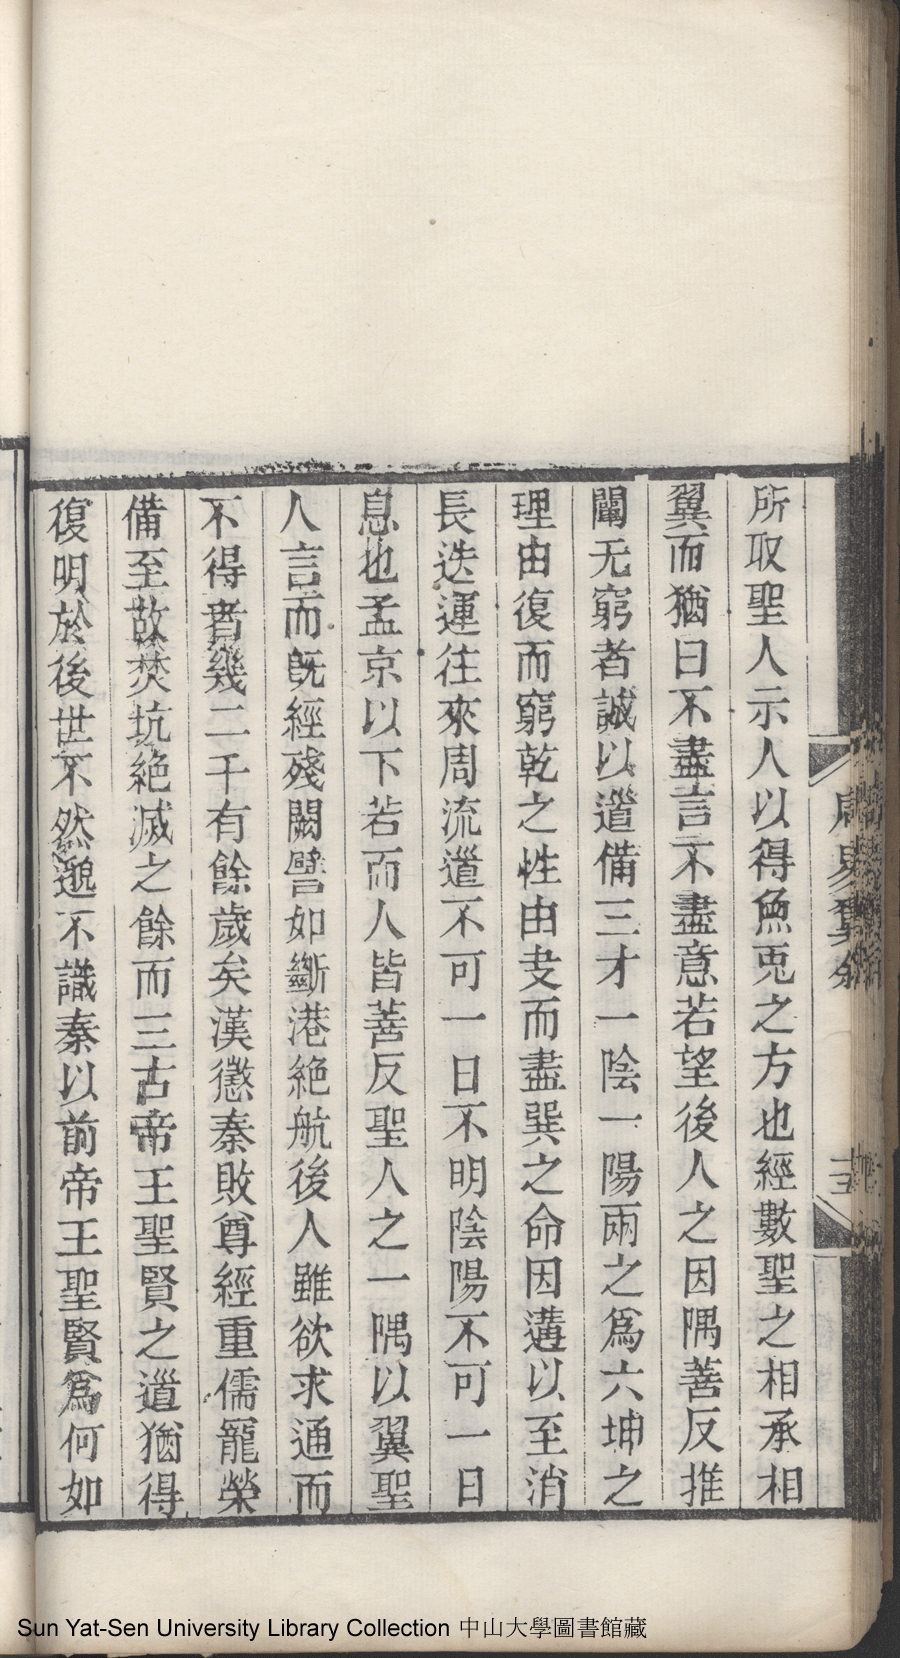 所取聖人示人以得魚兎之方也經數聖之相承相
翼而猶曰不盡言不盡意若望後人之因隅善反推
闡无窮者誠以道備三才一陰一陽兩之爲六坤之
理由復而窮乾之性由夬而盡巽之命因遘以至消
長迭運往來周流道不可一日不明陰陽不可一日
息也孟京以下若而人皆善反聖人之一隅以翼聖
人言而旣經殘闕譬如斷港絶航後人雖欲求通而
不得者幾二千有餘歲矣漢懲秦敗尊經重儒寵榮
備至故焚坑絶滅之餘而三古帝王聖賢之道猶得
復明於後世不然邈不識秦以前帝王聖賢爲何如
Sun Yat-Sen University Library Collection 中山大學圖書館藏